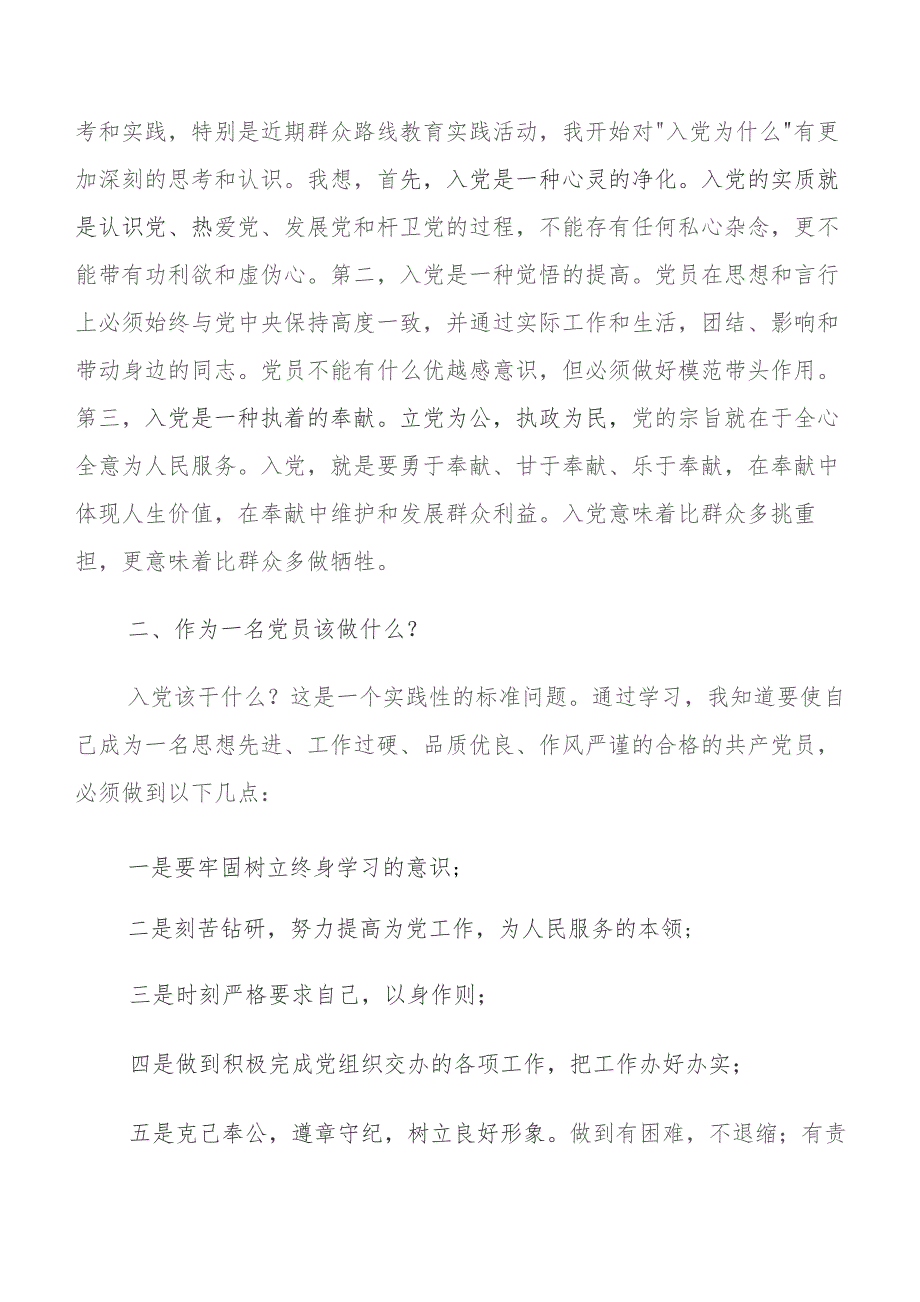 考和实践，特别是近期群众路线教育实践活动，我开始对"入党为什么"有更
加深刻的思考和认识。我想，首先，入党是一种心灵的净化。入党的实质就
是认识党、热爱党、发展党和杆卫党的过程，不能存有任何私心杂念，更不
能带有功利欲和虚伪心。第二，入党是一种觉悟的提高。党员在思想和言行
上必须始终与党中央保持高度一致，并通过实际工作和生活，团结、影响和
带动身边的同志。党员不能有什么优越感意识，但必须做好模范带头作用。
第三，入党是一种执着的奉献。立党为公，执政为民，党的宗旨就在于全心
全意为人民服务。入党，就是要勇于奉献、甘于奉献、乐于奉献，在奉献中
体现人生价值，在奉献中维护和发展群众利益。入党意味着比群众多挑重
担，更意味着比群众多做牺牲。
二、作为一名党员该做什么？
入党该干什么？这是一个实践性的标准问题。通过学习，我知道要使自
己成为一名思想先进、工作过硬、品质优良、作风严谨的合格的共产党员，
必须做到以下几点：
一是要牢固树立终身学习的意识；
二是刻苦钻研，努力提高为党工作，为人民服务的本领；
三是时刻严格要求自己，以身作则；
四是做到积极完成党组织交办的各项工作，把工作办好办实；
五是克己奉公，遵章守纪，树立良好形象。做到有困难，不退缩；有责